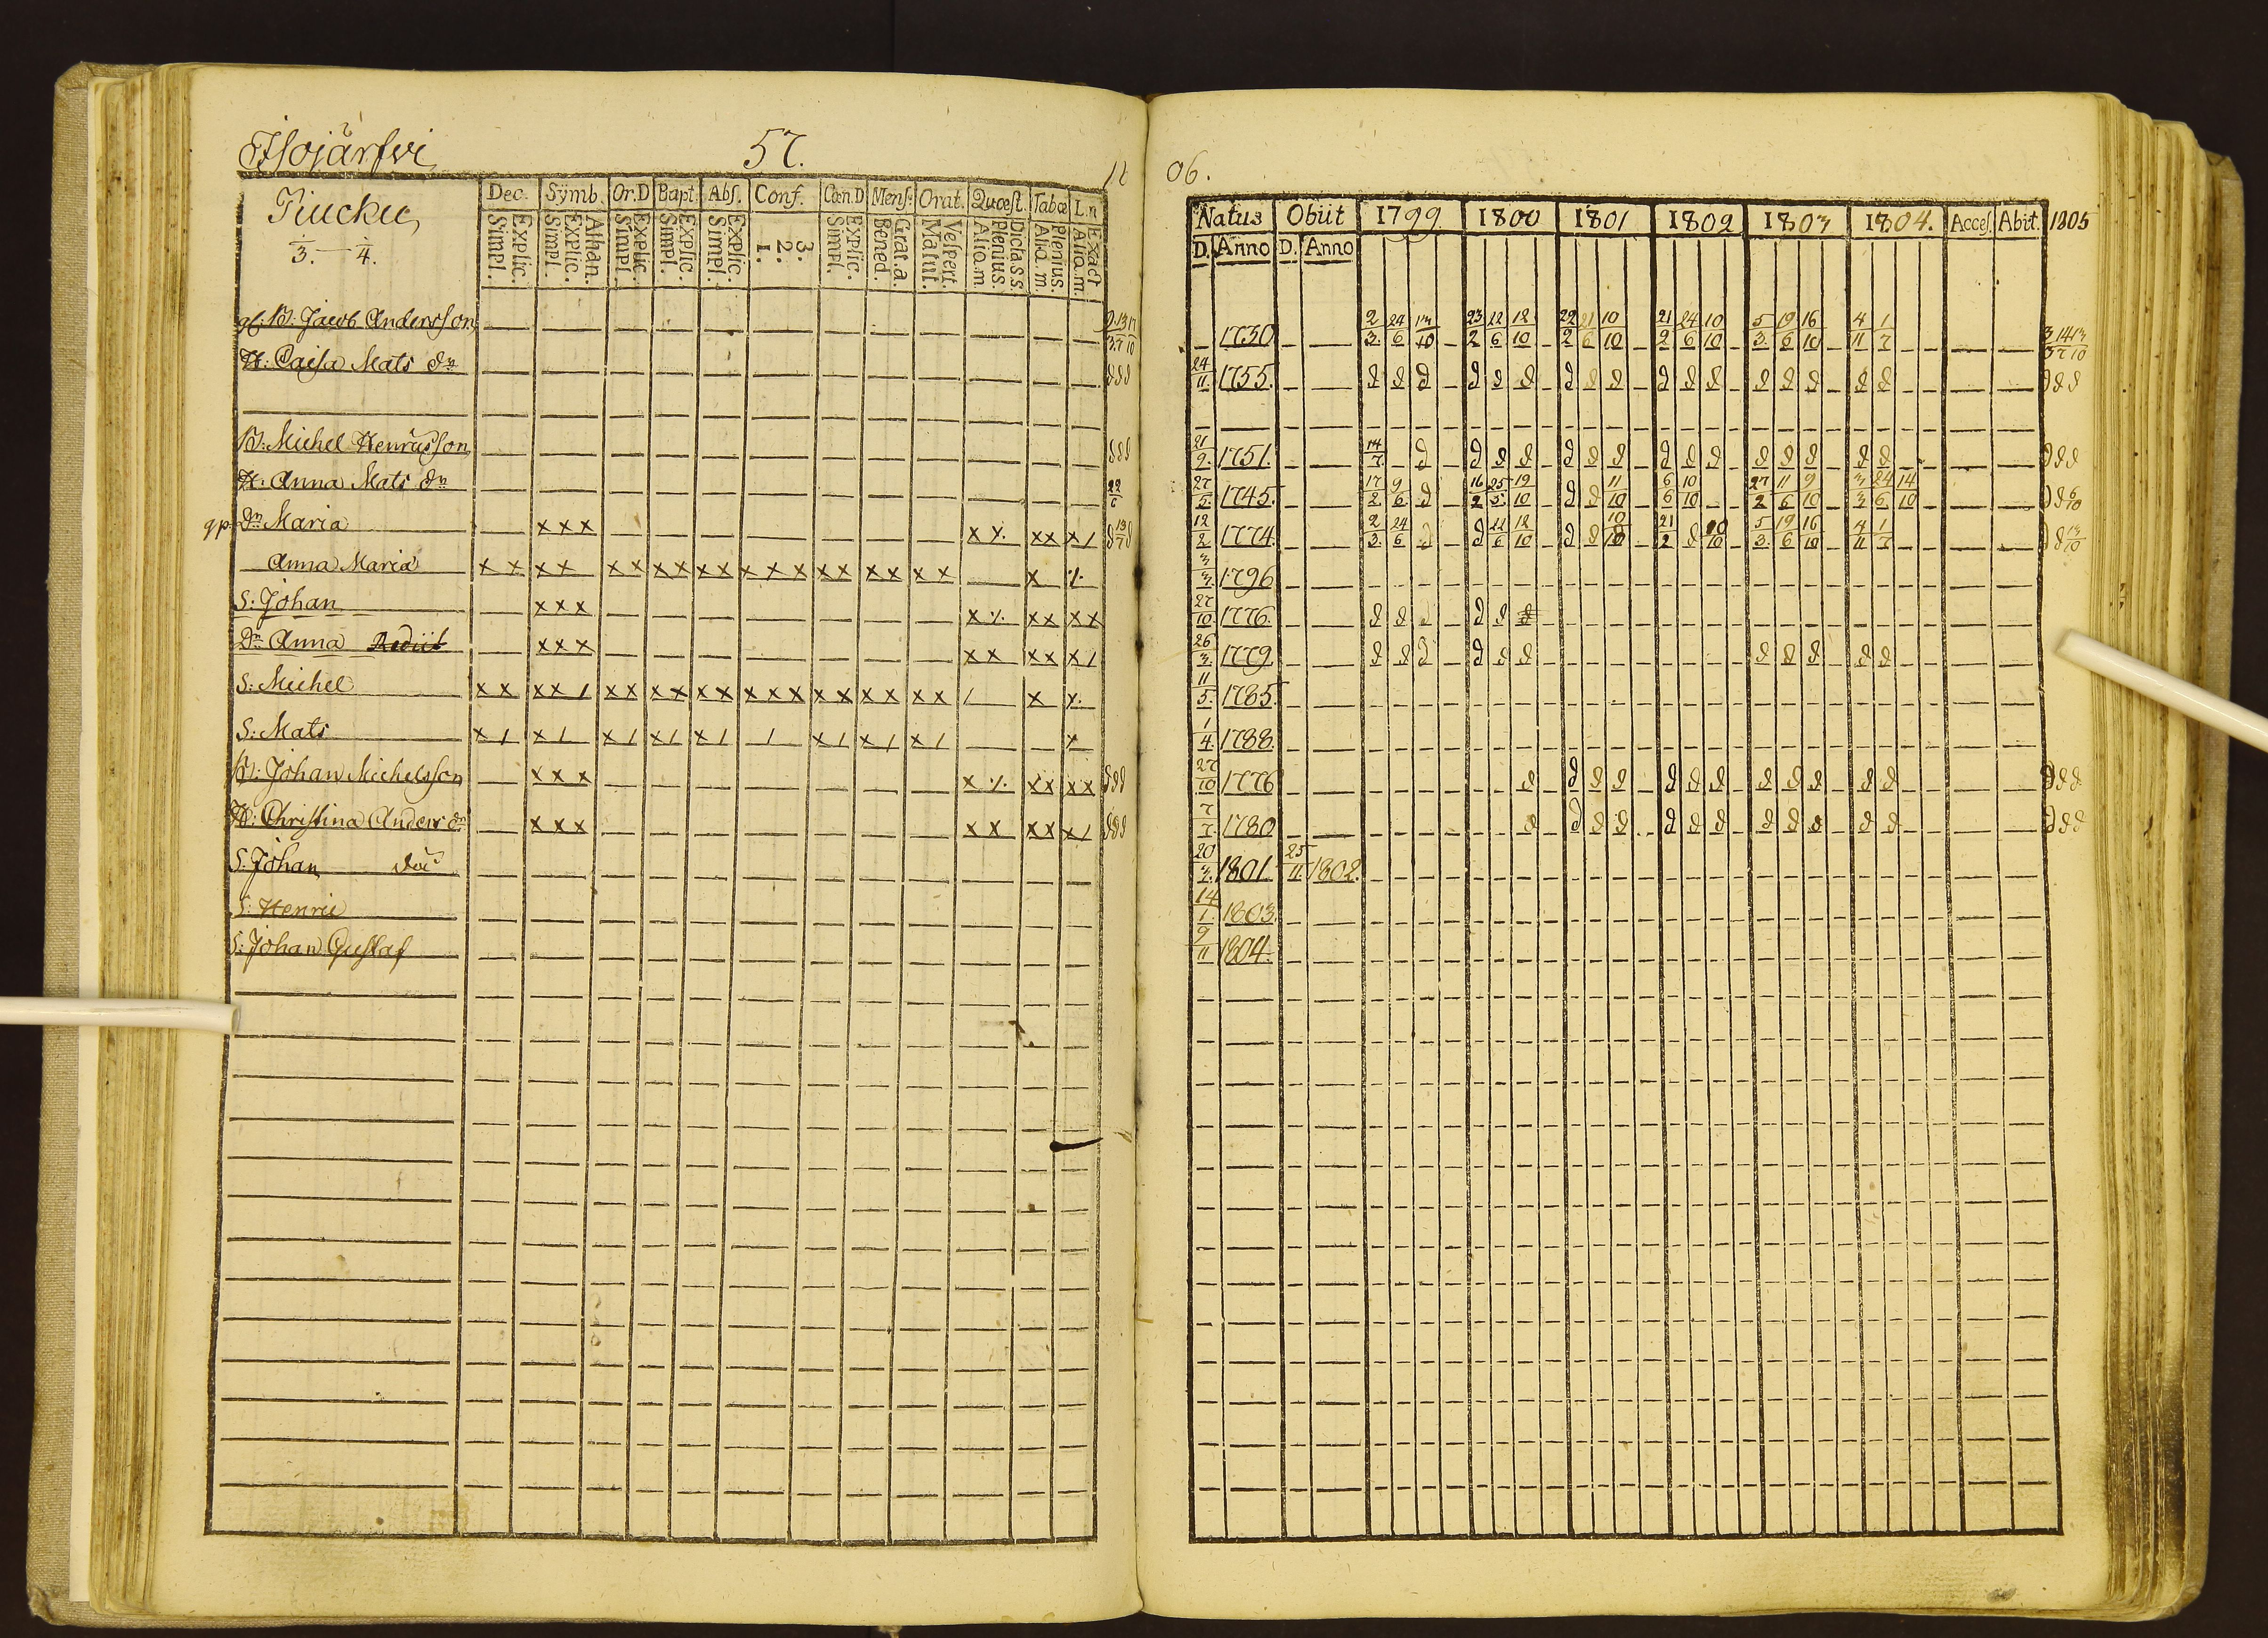 Isojärfvi 57.
Kiucku
3. — 4.
Dec. Symb. Or.D Bapt. Abs. Conf. Cœn.D Mens. Orat. Quœst. Tabœ L.n
Simpl. Explic. Simpl. Explic. Athan. Simpl. Explic. Simpl. Explic. Simpl. Explic. 1. 2. 3. Simpl. Explic. Bened. Grat.a. Matut. Vespert. Aliq.m Plenius. Dicta s.s. Aliq.m Plenius. Aliq.m. Exact
B. Jacob Andersson
H: Caisa Mats dn
B: Michel Henricsson
H: Anna Mats dn
Dn Maria x x x x x x x /
Anna Maria x x x x x x x x x x x x x x x x x x x x
S: Johan x x x x x x x x
Dn Anna Rediit x x x x x x x x /
S: Michel x x x x / x x x x x x x x x x x x x x x / x
S: Mats x / x / x / x / x / / x / x / x / x
B: Johan Michelsson x x x x x x x x
H: Christina Anders dn x x x x x x x x /
S. Johan
S: Henric
S: Johan Gustaf
06.
Natus Obiit 1799. 1800 1801 1802 1803 1804. Acces. Abiit. 1805
D. Anno D. Anno
1750 2/3. 24/6 13/10 23/2 22/6 12/10 22/2 21/6 10/10 21/2 24/6 10/10 5/3. 19/6 16/10 4/11 1/7
24/11. 1755. d d d d d d d d d d d d d d d d d d d d
21/9. 1751. 14/7. d d d d d d d d d d d d d d d d d d
27/5. 1745. 17/2 9/6 d 16/2 25/5 19/10 d d 11/10 6/6 10/10 27/2 11/6 9/10 3/3 24/6 14/10
12/2 1774. 2/3. 24/6 d d 22/6 12/10 d d 10/10 21/2 d 10/10 5/3. 19/6 16/10 4/11 1/7
3/3. 1796
27/10 1776. d d d d d d
26/3. 1779. d d d d d d d d d d d
11/5. 1785.
1/4. 1788.
27/10 1776 d d d d d d d d d d d d d d d
7/7. 1780 d d d d d d d d d d d d d d d
20/3. 1801 25/11 1802.
14/1. 1803.
9/11 1804.